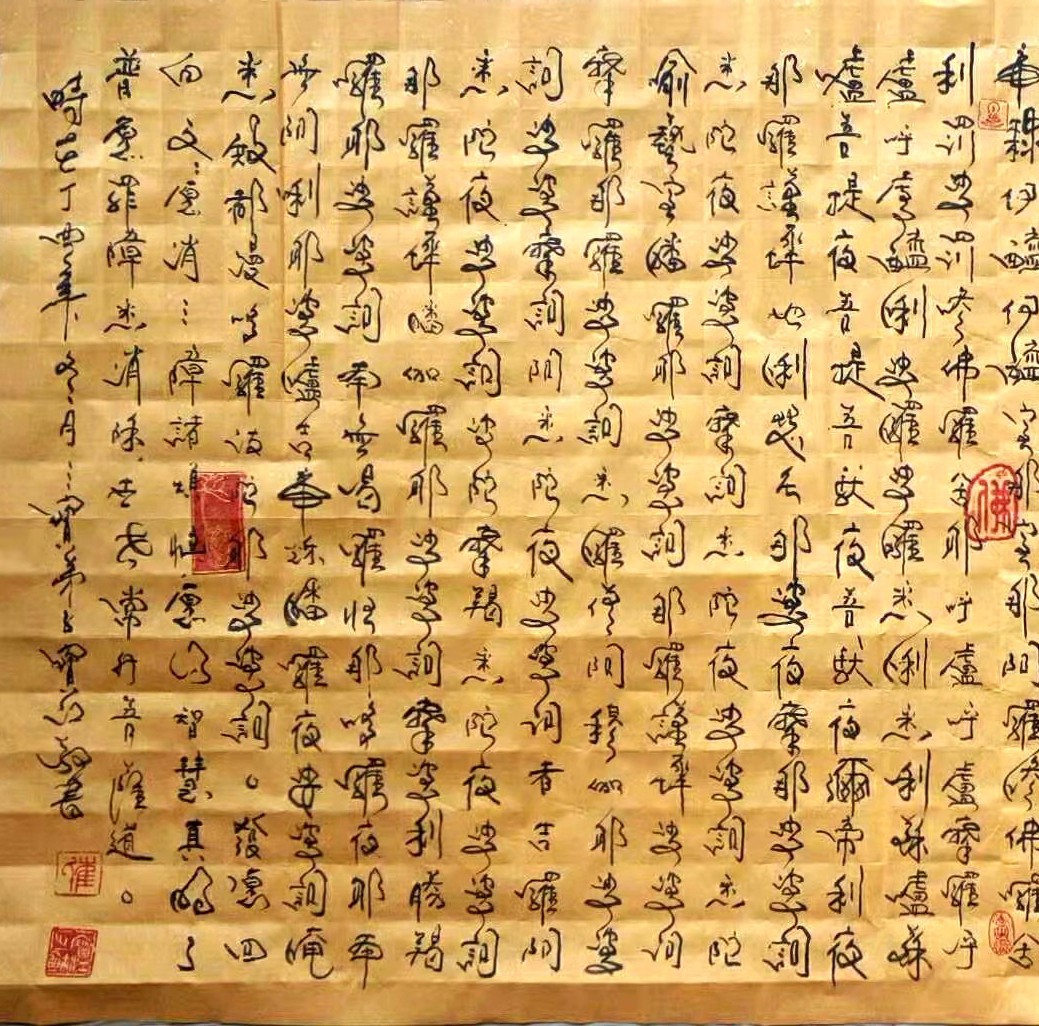 帝隸伊醯伊醯室那室那阿囉嘇佛囉舍
利罰娑罰嘇佛囉舍耶呼盧呼盧摩囉呼
盧呼盧醯唎娑囉娑囉悉唎悉利蘇嚧蘇
嚧菩提夜菩提菩馱夜菩馱夜彌帝利夜
那囉謹墀地唎瑟尼那婆夜摩那娑婆訶
悉陀夜娑婆訶摩訶悉陀夜娑婆訶悉陀
喻藝室皤囉耶娑婆訶那囉謹墀娑婆訶
摩囉那囉娑婆訶悉囉僧阿穆伽耶娑婆
訶娑婆摩訶阿悉陀夜娑婆訶者吉囉阿
悉陀夜娑婆訶婆陀摩羯悉陀夜娑婆訶
那囉謹墀皤伽囉耶娑婆訶摩婆利勝羯
囉耶娑婆訶南無喝囉怛那哆囉夜耶南
無阿唎耶婆嚧吉帝爍皤囉夜娑婆訶唵
悉殿都漫哆囉跋陀耶娑婆訶。發愿回
向文愿消三障諸煩惱愿得智慧真明了
普愿罪障悉消除世世常行菩薩道。
時在丁酉年冬月三寶弟子寶敬書
佛